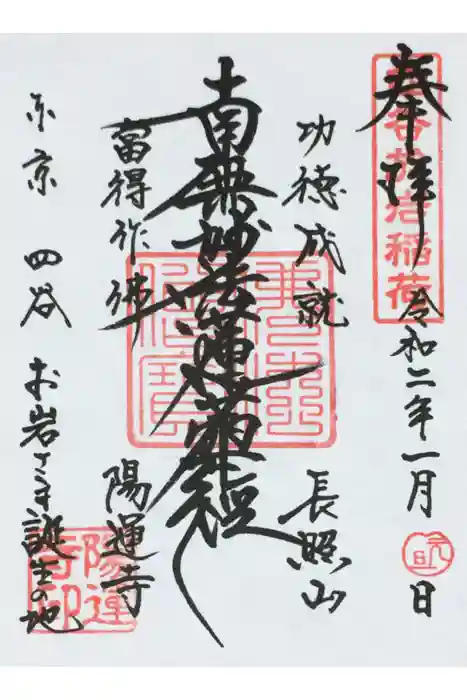 奉拝
四谷於岩稲荷
令和二年一月
元旦
日
功徳成就
長照山
南無妙法蓮華経
三宝
仏法僧宝
當得作佛
陽運寺
東京 四谷 お岩さま誕生の地
陽運
寺印